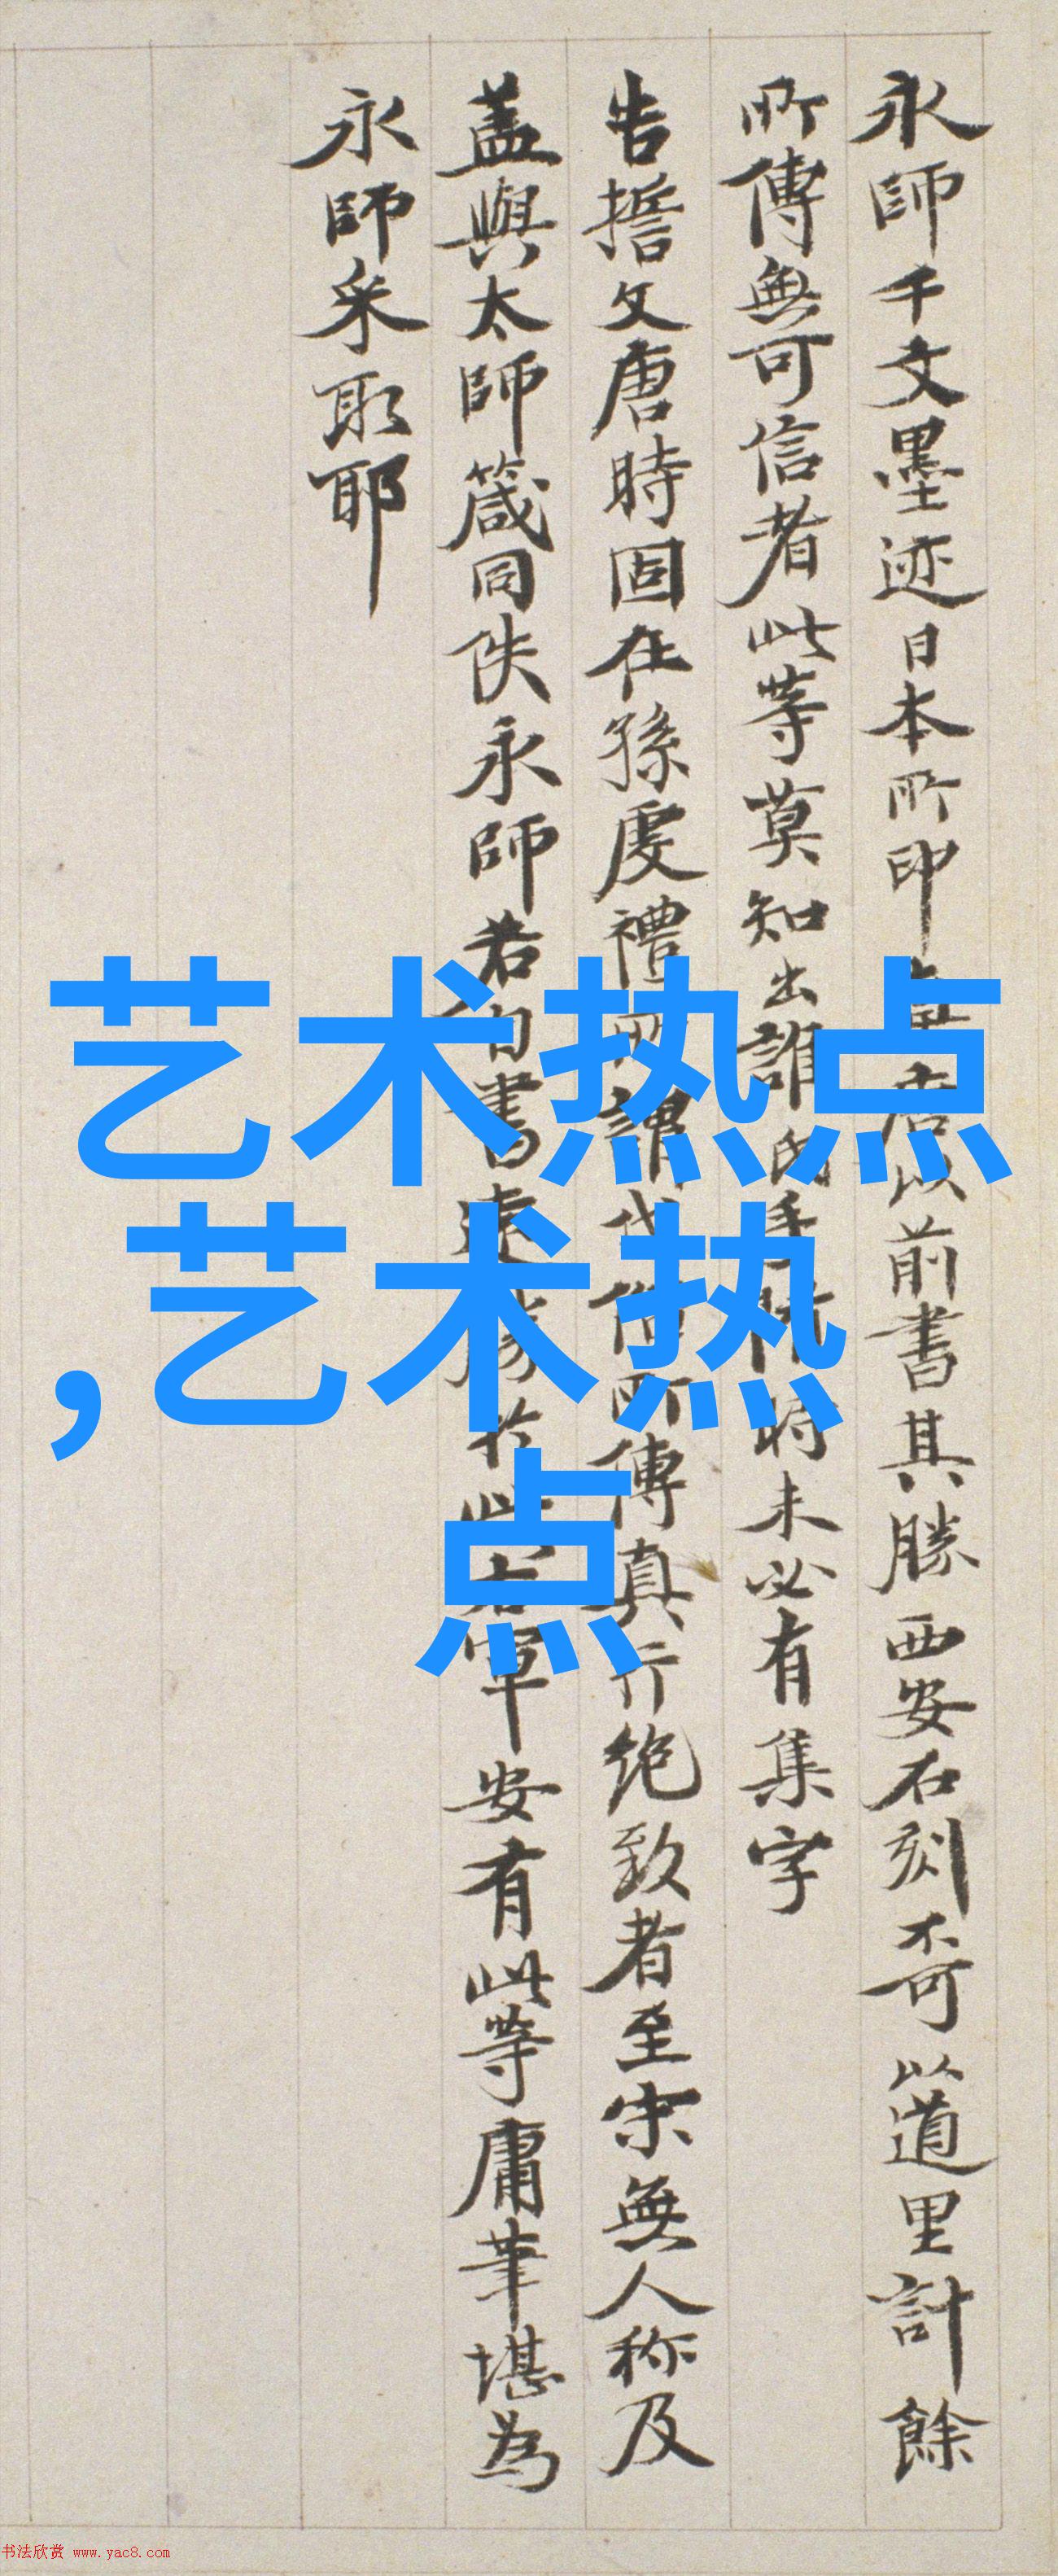 永師千文墨迹日本所印是唐以前書其勝西安石刻奇以道里計餘
所傳無可信者此等莫知出誰氏手隋時未必有集字
告擔文唐時固在孫虔禮所謂代俗所傳真行絶致者至宋無人称及
盖與太師箴同佚永師若自書遠勝於此右軍安有此等庸筆堪為
永師采取耶
艺术热点
,艺术热
点
书法欣赏 www.yac8.com